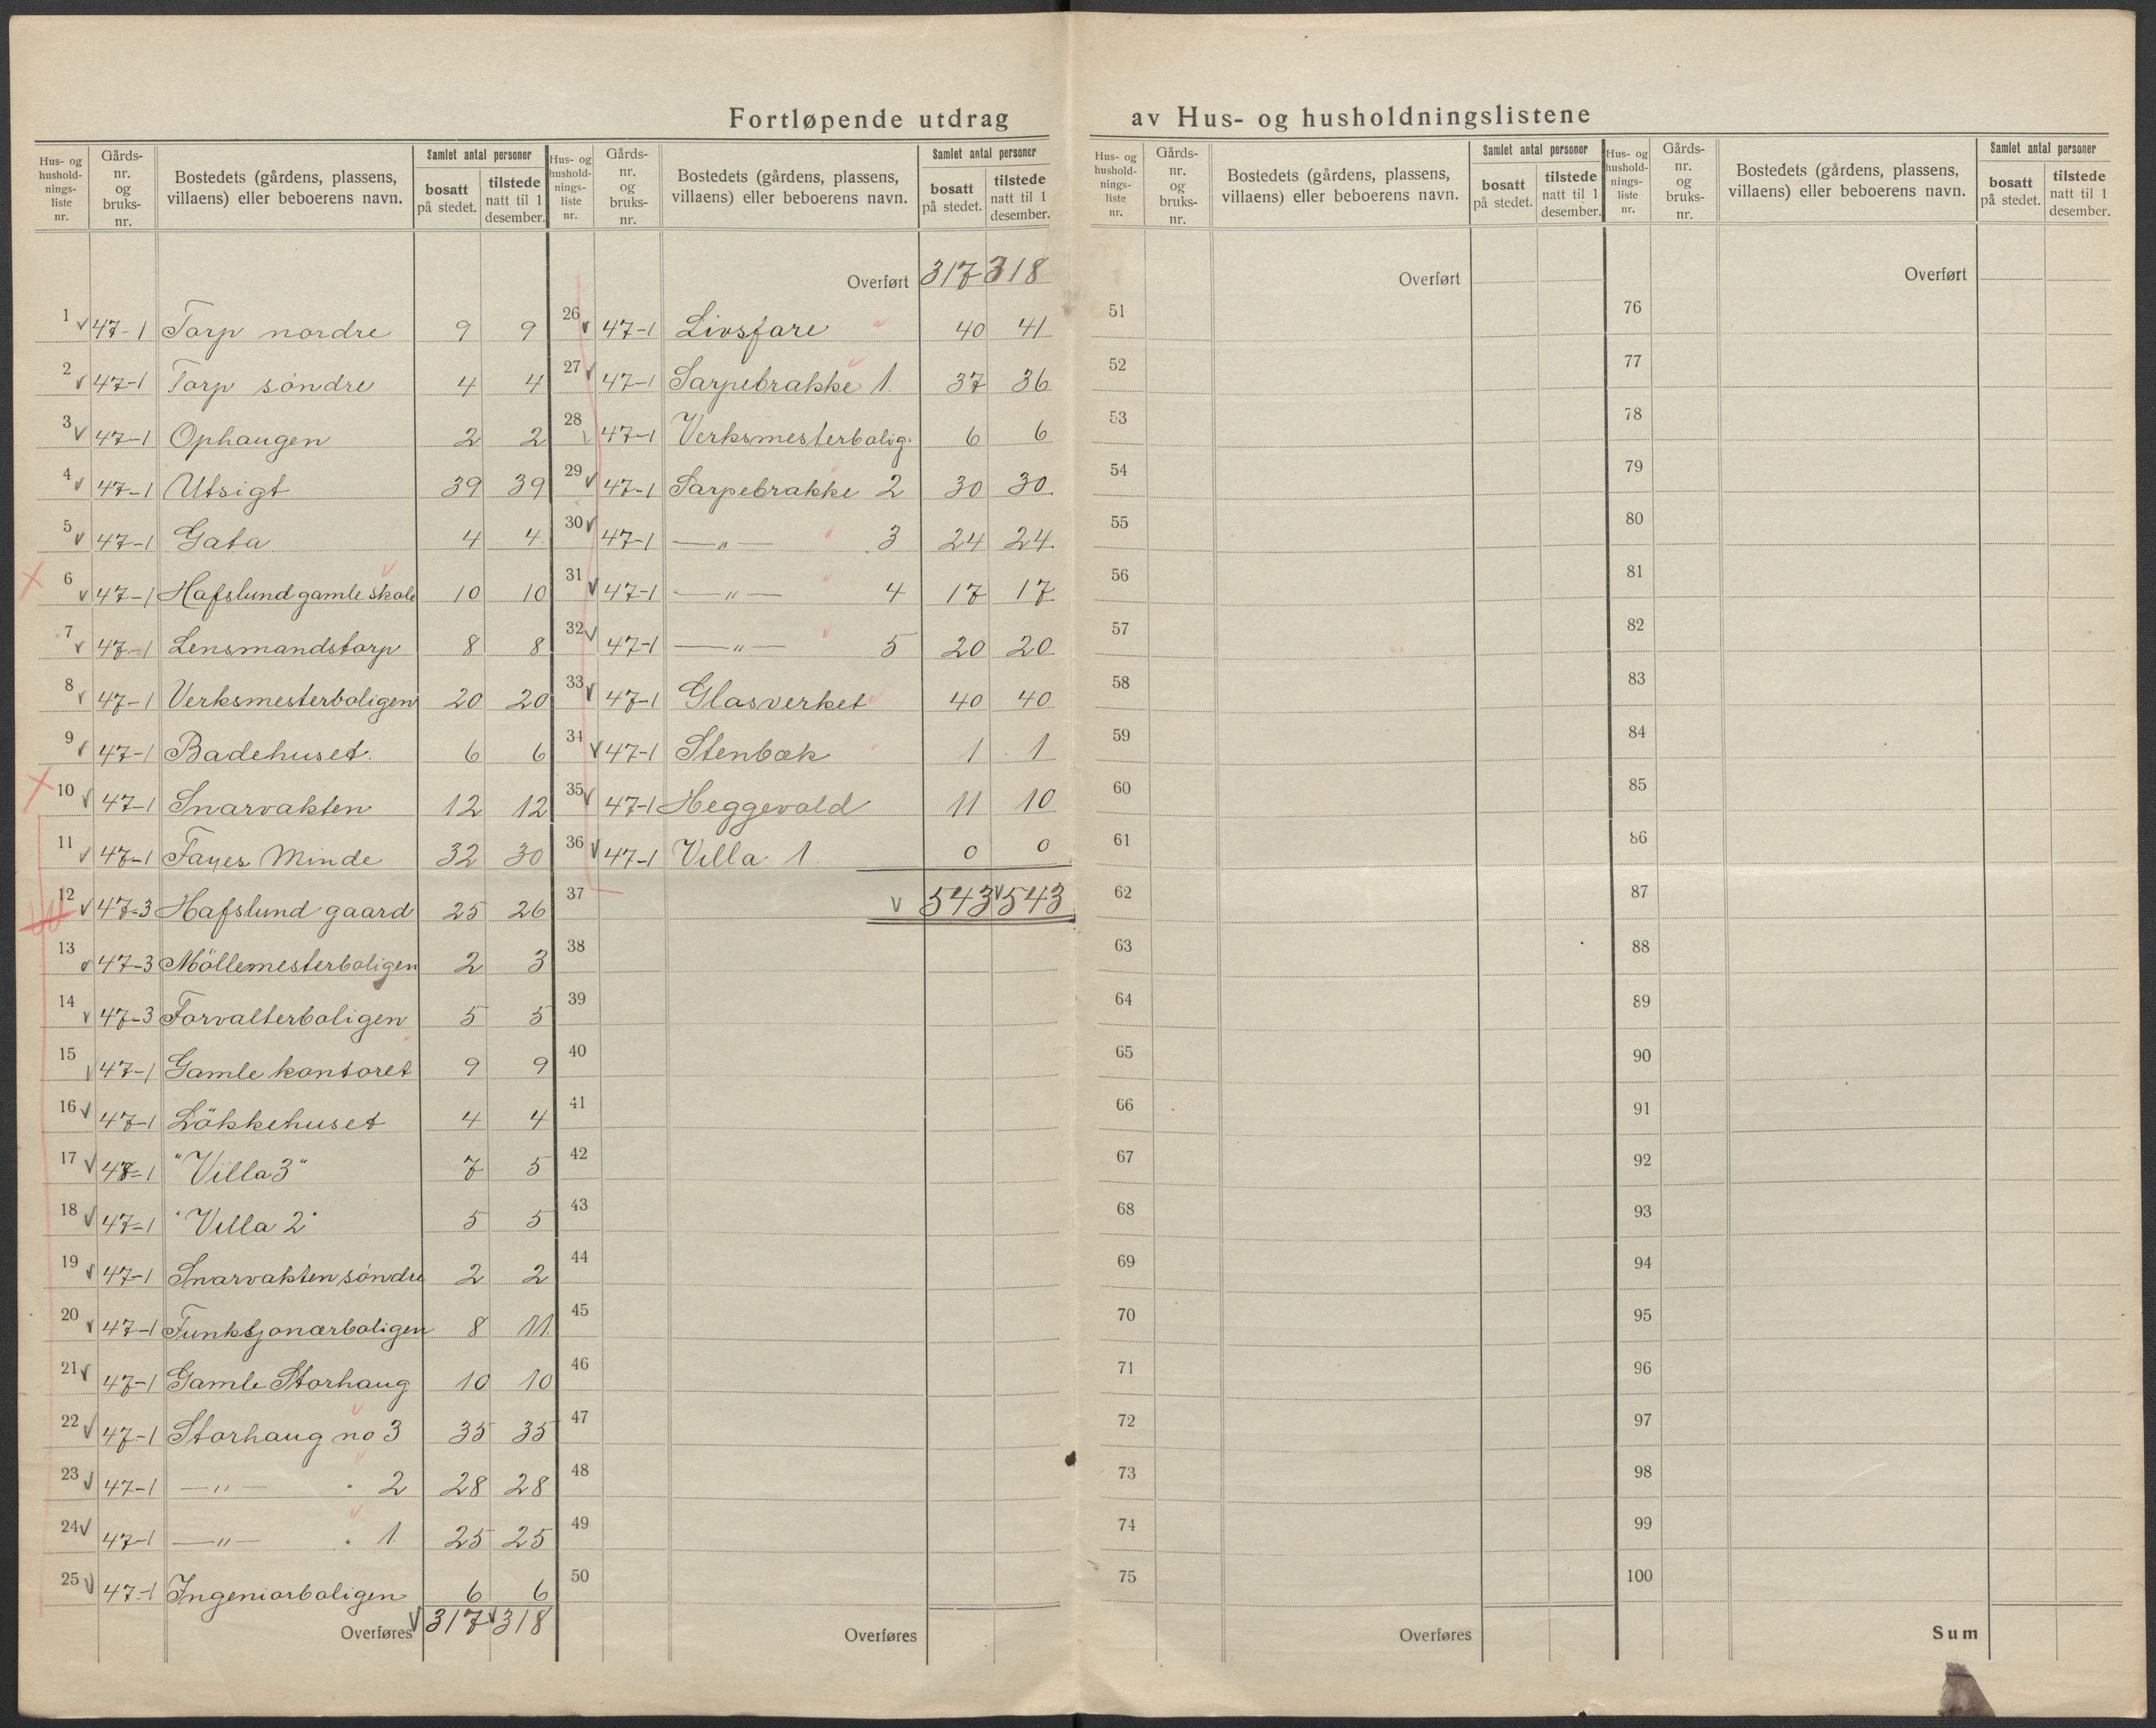 Fortløpende utdrag av Hus- og husholdningslistene
Hus- og husholdnings-liste nr. | Gårds-nr. og bruks-nr. | Bostedets (gårdens, plassens, villaens) eller beboerens navn. | Samlet antal personer | bosatt på stedet. | tilstede natt til 1 desember.
1 47-1 Torp nordre 9 9
2 47-1 Torp söndre 4 4
3 47-1 Ophaugen 2 2
4 47-1 Utsigt 39 39
5 47-1 Gata 4 4
6 47-1 Hafslund gamle skole 10 10
7 47-1 Lensmandstorp 8 8
8 47-1 Verksmesterboligen 20 20
9 47-1 Badehuset 6 6
10 47-1 Snarvakten 12 12
11 47-1 Fayes Minde 32 30
12 47-3 Hafslund gaard 25 26
13 47-3 Möllemesterboligen 2 3
14 47-3 Forvalterboligen 5 5
15 47-1 Gamle kontoret 9 9
16 47-1 Lökkehuset 4 4
17 47-1 "Villa 3" 7 5
18 47-1 "Villa 2" 5 5
19 47-1 Snarvakten söndre 2 2
20 47-1 Funktjonærboligen 8 11
21 47-1 Gamle Storhaug 10 10
22 47-1 Storhaug no 3 35 35
23 47-1 —"— " 2 28 28
24 47-1 —"— " 1 25 25
25 47-1 Ingeniørboligen 6 6
Overføres 317 318
Hus- og husholdnings-liste nr. | Gårds-nr. og bruks-nr. | Bostedets (gårdens, plassens, villaens) eller beboerens navn. | Samlet antal personer | bosatt på stedet. | tilstede natt til 1 desember.
Overført 317 318
26 47-1 Livsfare 40 41
27 47-1 Sarpebrakke 1. 37 36
28 47-1 Verksmesterbolig. 6 6
29 47-1 Sarpebrakke 2 30 30
30 47-1 —"— 3 24 24
31 47-1 —"— 4 17 17
32 47-1 —"— 5 20 20
33 47-1 Glasverket 40 40
34 47-1 Stenbæk 1 1
35 47-1 Heggevold 11 10
36 47-1 Villa 1 0 0
37 543 543
38
39
40
41
42
43
44
45
46
47
48
49
50
Overføres
Hus- og husholdnings-liste nr. | Gårds-nr. og bruks-nr. | Bostedets (gårdens, plassens, villaens) eller beboerens navn. | Samlet antal personer | bosatt på stedet. | tilstede natt til 1 desember.
Overført
51
52
53
54
55
56
57
58
59
60
61
62
63
64
65
66
67
68
69
70
71
72
73
74
75
Overføres
Hus- og husholdnings-liste nr. | Gårds-nr. og bruks-nr. | Bostedets (gårdens, plassens, villaens) eller beboerens navn. | Samlet antal personer | bosatt på stedet. | tilstede natt til 1 desember.
Overført
76
77
78
79
80
81
82
83
84
85
86
87
88
89
90
91
92
93
94
95
96
97
98
99
100
Sum